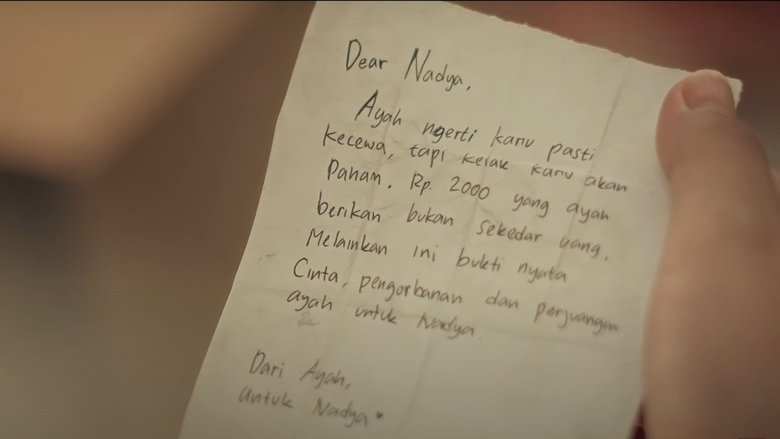 Dear Nadya,
Ayah ngerti kamu pasti
kecewa, tapi kelak kamu akan
Paham. Rp. 2000 yang ayah
berikan bukan sekedar uang.
Melainkan ini bukti nyata
Cinta, pengorbanan dan perjuangan
ayah untuk Nadya
Dari Ayah,
untuk Nadya